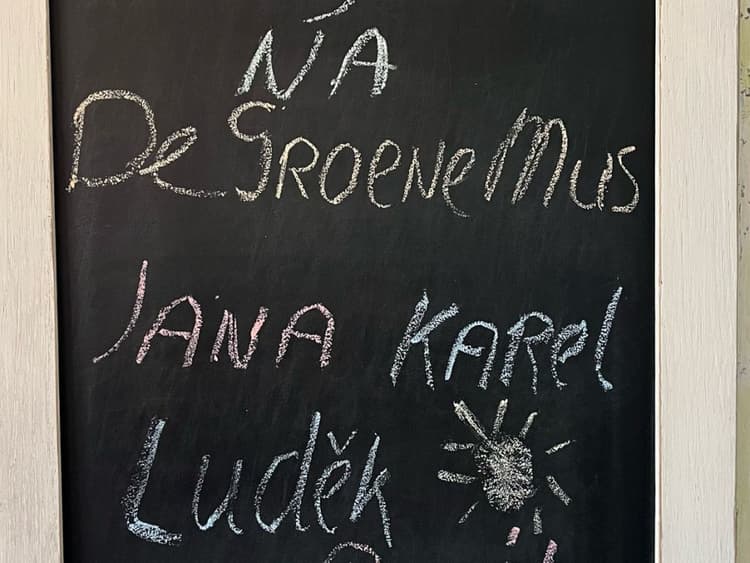 NA
De GROENe Mus
JANA KARel
Luděk